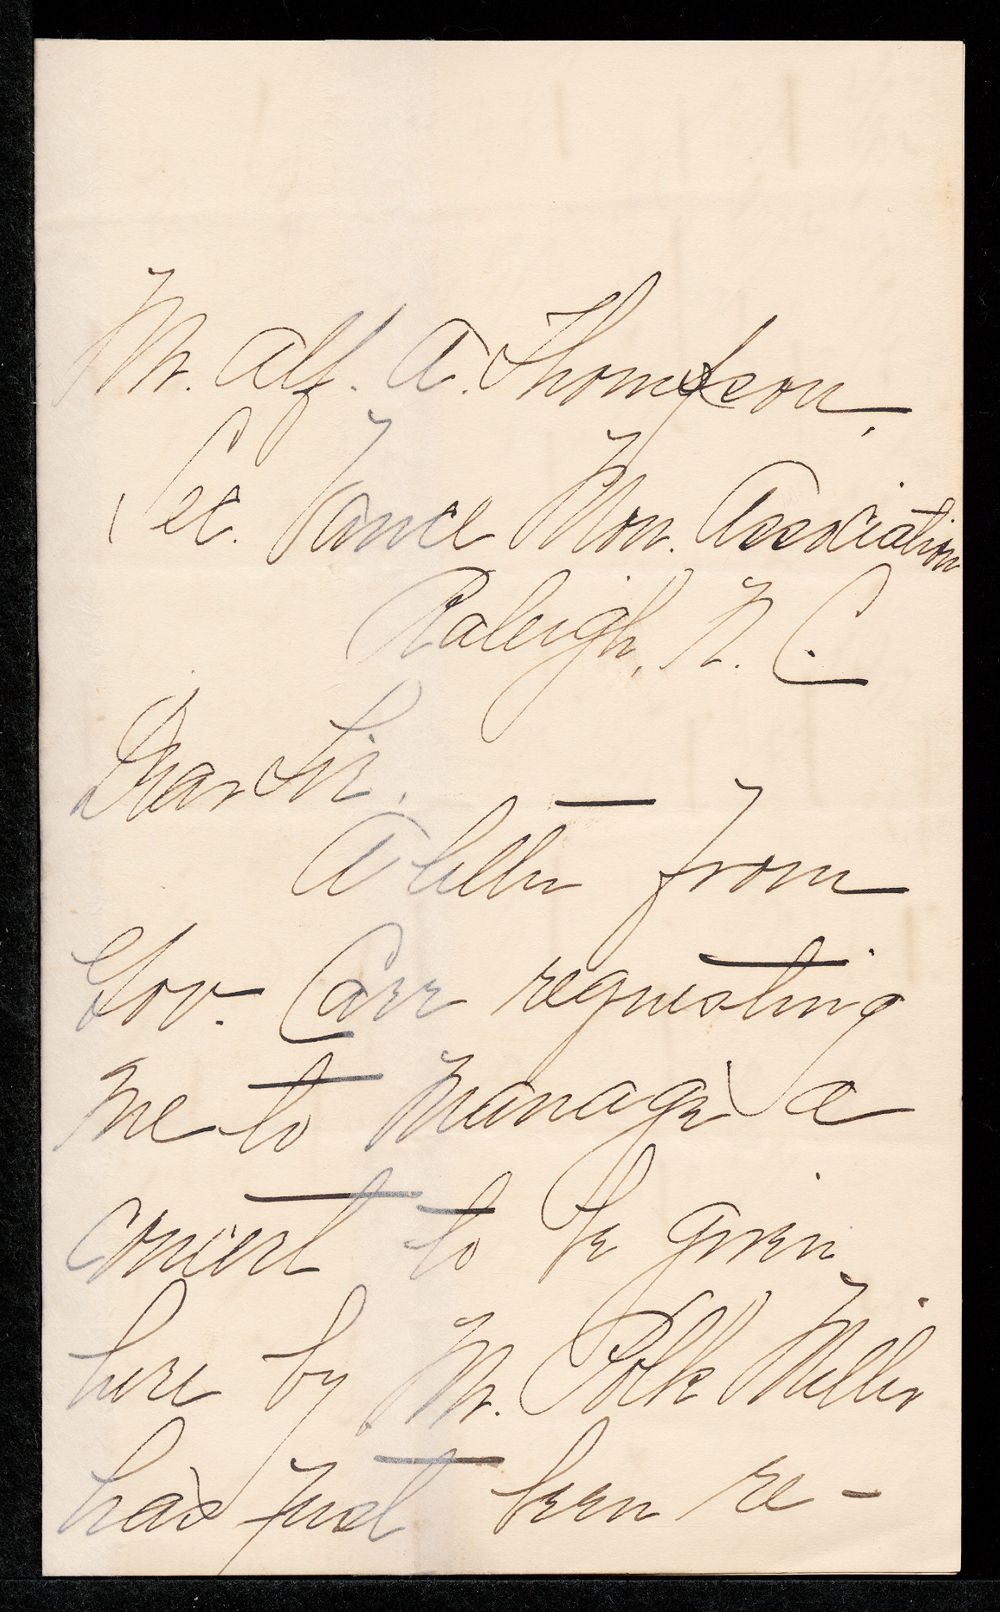 Mr. Alf. A. Thompson,
Sec. Vance Mon. Association
Raleigh, N. C.
Dear Sir,
A letter from
Gov. Carr requesting
me to manage a
concert to be given
here by Mr. Polk Miller
has just been re-